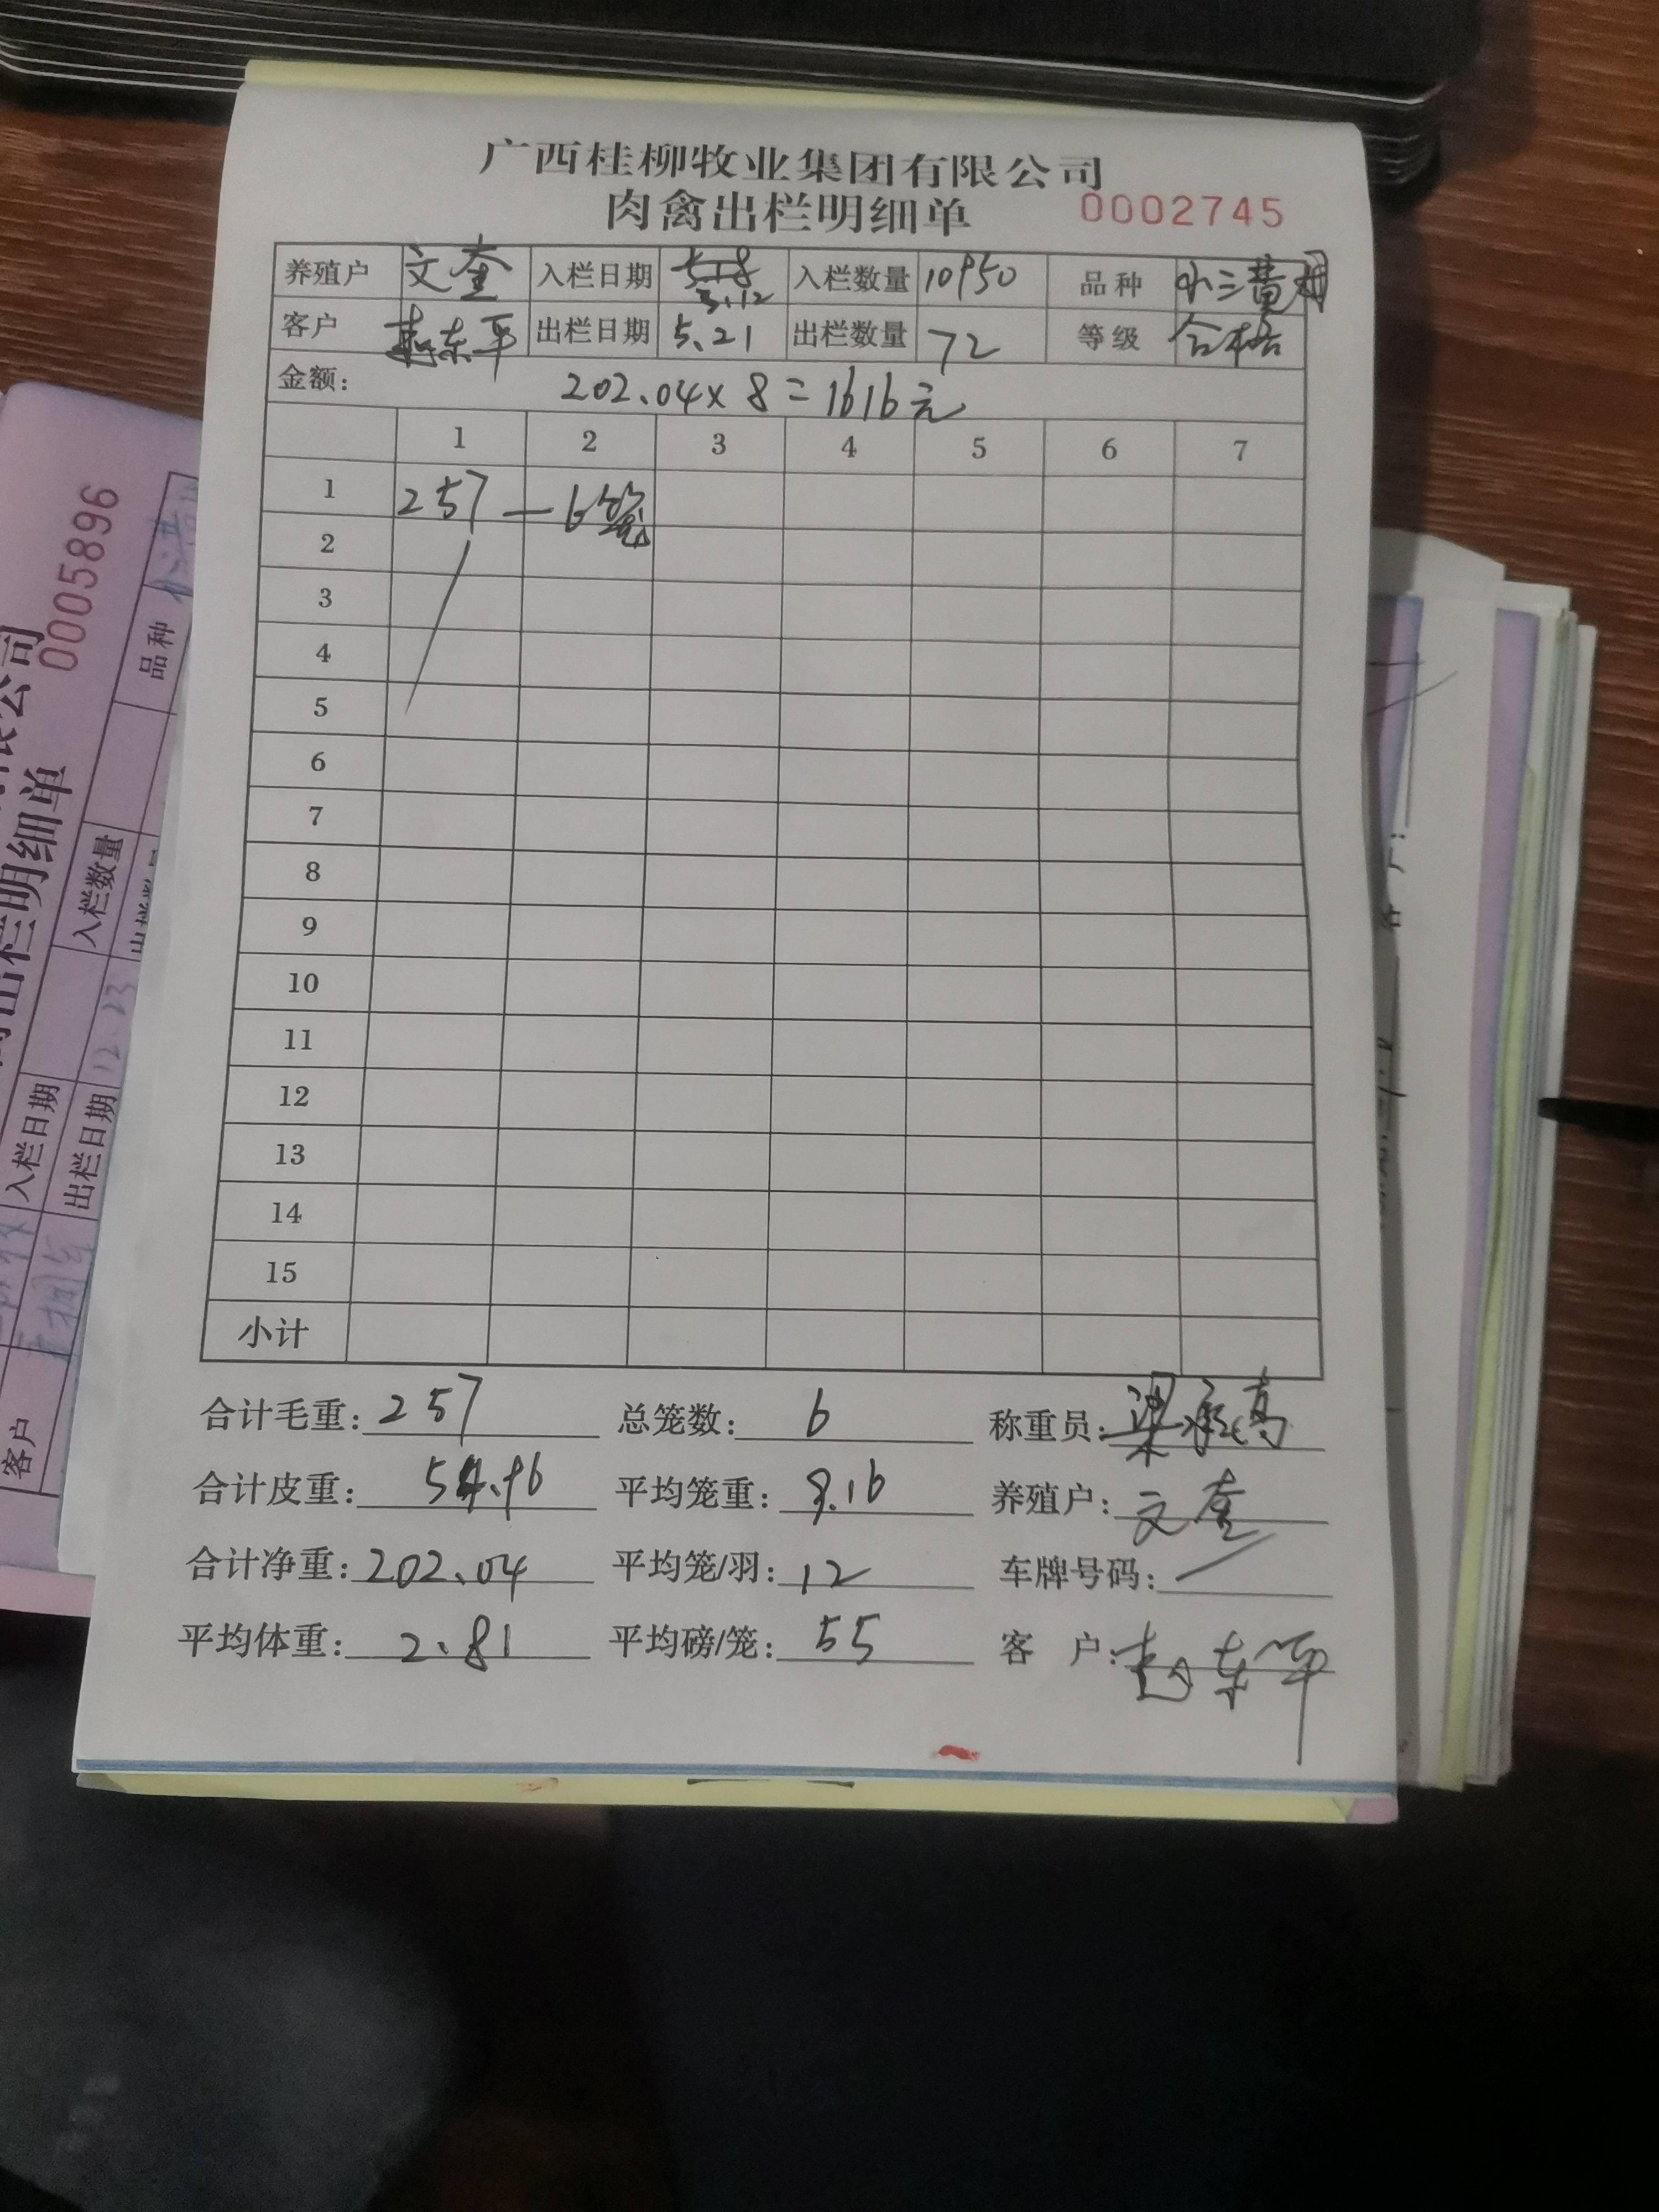 广西桂柳牧业集团有限公司
肉禽出栏明细单 0002745
养殖户 文奎 入栏日期 3.12 入栏数量 10950 品种 小三黄
客户 东平 出栏日期 5.21 出栏数量 72 等级 合格
金额: 202.04×8=1616元
1 2 3 4 5 6 7
1 257 — 6笼
2
3
4
5
6
7
8
9
10
11
12
13
14
15
小计
合计毛重: 257 总笼数: 6 称重员: 梁承高
合计皮重: 54.96 平均笼重: 9.16 养殖户: 文奎
合计净重: 202.04 平均笼/羽: 12 车牌号码: /
平均体重: 2.81 平均磅/笼: 55 客 户: 东平
0005896
限公司
出栏明细单
品种
入栏数量
入栏日期
出栏日期 12.23
客户